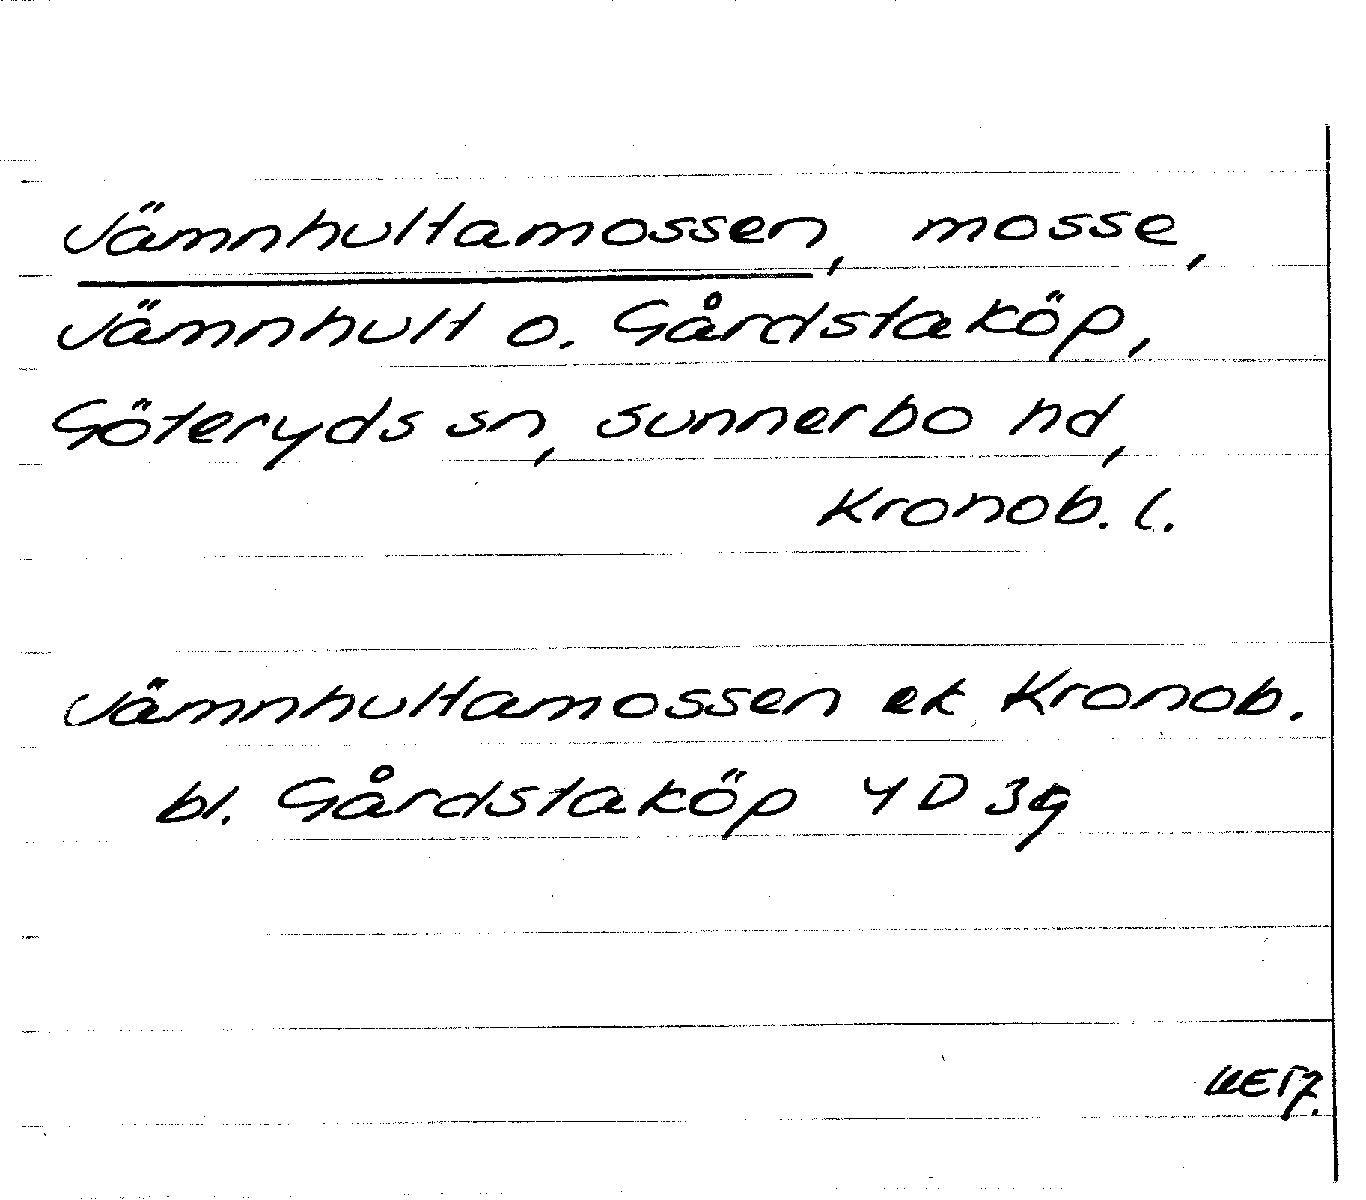 Jämnhultamossen, mosse,
Jämnhult o. Gårdstaköp,
Göteryds sn, Sunnerbo hd,
Kronob. l.
Jämnhultamossen ek Kronob.
bl. Gårdstaköp 4 D 3g